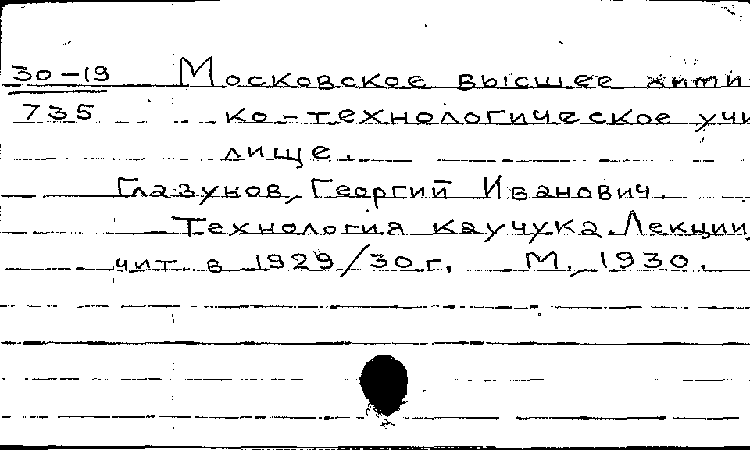 30-19 Московское высшее хими
735 ко-технологическое учи
лище.
Глазунов, Георгий Иванович.
Технология каучука. Лекции,
чит. в 1929/30 г. М., 1930.